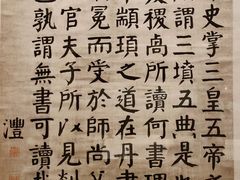 史掌三皇五帝
謂三墳五典是
稷卨所讀何書
顓頊之道在丹書
冕而受於師尚父
官夫子所以見
孰謂無書可讀哉
灃